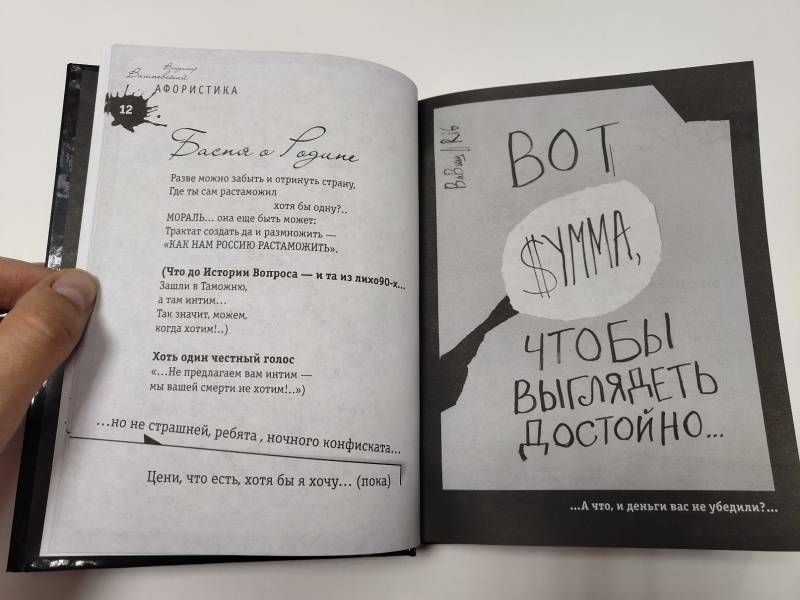 Владимир
Вишневский
АФОРИСТИКА
12
Басня о Родине
Разве можно забыть и отринуть страну,
Где ты сам растаможил
хотя бы одну?..
МОРАЛЬ... она еще быть может:
Трактат создать да и размножить —
«КАК НАМ РОССИЮ РАСТАМОЖИТЬ».
(Что до Истории Вопроса — и та из лихо90-х...
Зашли в Таможню,
а там интим...
Так значит, можем,
когда хотим!..)
Хоть один честный голос
«...Не предлагаем вам интим —
мы вашей смерти не хотим!..»)
...но не страшней, ребята , ночного конфиската...
Цени, что есть, хотя бы я хочу... (пока)
ВлВиш||Rib
ВОТ
$УММА,
ЧТОБЫ
ВЫГЛЯДЕТЬ
ДОСТОЙНО...
...А что, и деньги вас не убедили?...